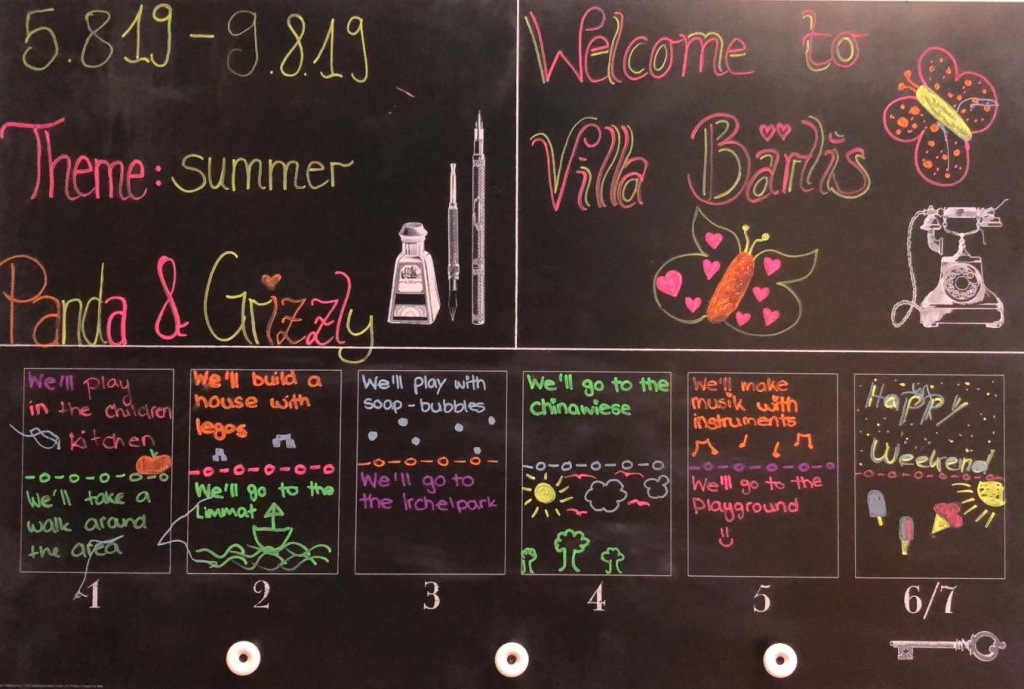 5.8.19 - 9.8.19
Theme: summer
Panda & Grizzly
Welcome to
Villa Bärlis
We'll play
in the children
kitchen
We'll take a
walk around
the area
1
We'll build a
house with
legos
We'll go to the
Limmat
2
We'll play with
soap-bubbles
We'll go to
the Irchelpark
3
We'll go to the
chinawiese
4
We'll make
musik with
instruments
We'll go to the
Playground
5
Happy
Weekend
6/7